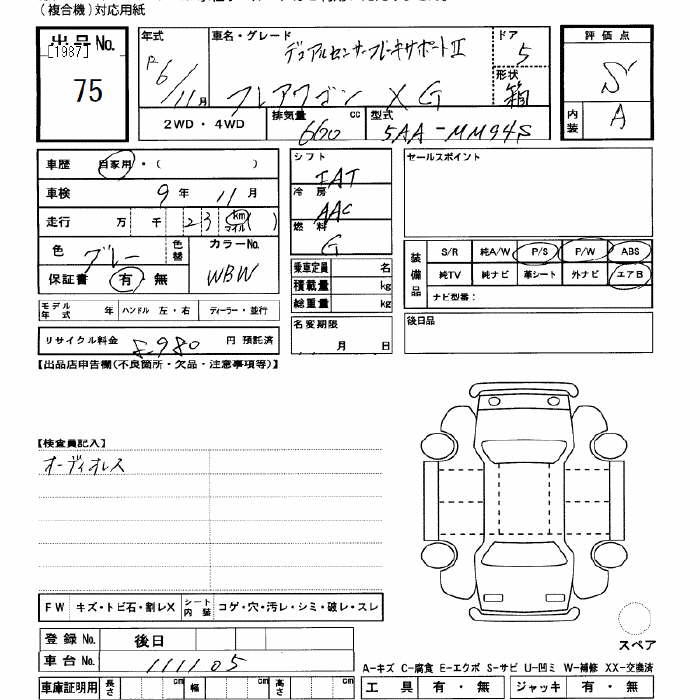 (複合機)対応用紙
出品No.
[1987]
75
年式
R 6/11月
車名・グレード
デュアルセンサーブレーキサポートⅡ
フレアワゴン XG
ドア
5
形状
箱
評価点
S
内装
A
2WD・4WD
排気量
660 cc
型式
5AA-MM94S
車歴 自家用・( )
車検 9年 11月
走行 万 千 23 km マイル ( )
色 グレー 色替
カラーNo.
WBW
保証書 有・無
モデル年式 年 ハンドル 左・右 ディーラー・並行
リサイクル料金 8980 円 預託済
シフト
IAT
冷房
AAC
燃料
G
乗車定員 名
積載量 kg
総重量 kg
名変期限
月 日
セールスポイント
装備品
S/R 純A/W P/S P/W ABS
純TV 純ナビ 革シート 外ナビ エアB
ナビ型番:
後日品
【出品店申告欄(不良箇所・欠品・注意事項等)】
【検査員記入】
オーディオレス
FW キズ・トビ石・割レX シート内装 コゲ・穴・汚レ・シミ・破レ・スレ
登録No. 後日
車台No. 111105
車庫証明用 長さ cm 幅 cm 高さ cm
スペア
A-キズ C-腐食 E-エクボ S-サビ U-凹ミ W-補修 XX-交換済
工具 有・無 ジャッキ 有・無